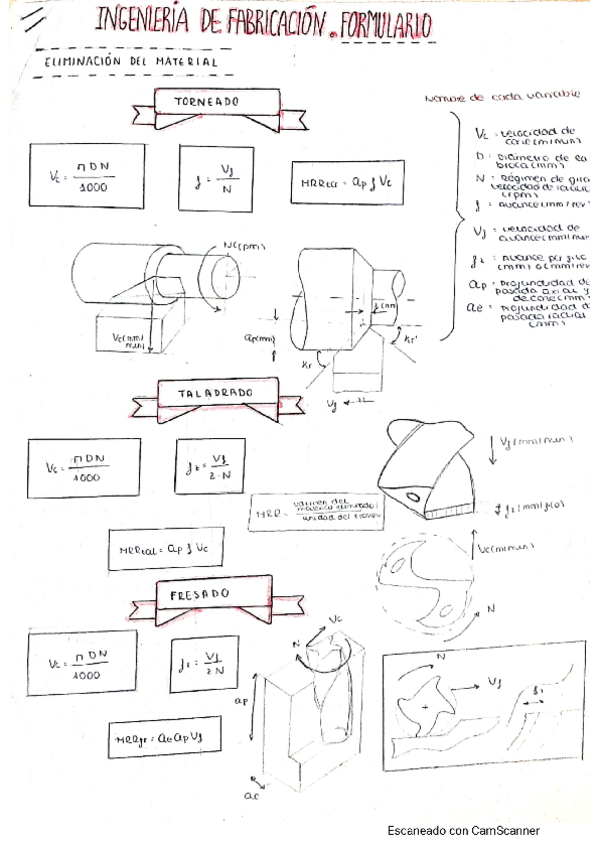 INGENIERÍA DE FABRICACIÓN. FORMULARIO
ELIMINACIÓN DEL MATERIAL
TORNEADO
Nombre de cada variable
Vc = π D N / 1000
f = Vf / N
MRRtor = ap f Vc
Vc = velocidad de corte (m/min)
D = Diámetro de la broca (mm)
N = Régimen de giro
velocidad de
(rpm)
f = avance (mm/rev
Vf = velocidad de
avance (mm/min
fz = avance por filo
(mm) o (mm/rev
ap = Profundidad de
pasada axial y
de corte (mm
ae = Profundidad de
pasada radial
(mm)
N (rpm)
Vc (mm/
min)
ap (mm)
f (mm
Kr
Kr'
Vf
TALADRADO
Vc = π D N / 1000
fz = Vf / 2·N
MRR = volumen del material eliminado / unidad del tiempo
Vf (mm/min)
fz (mm/filo)
MRRtal = ap f Vc
Vc (m/min)
N
FRESADO
Vc = π D N / 1000
fz = Vf / 2N
MRRfr = ae ap Vf
Vc
N
ap
ae
N
Vf
fz
Escaneado con CamScanner